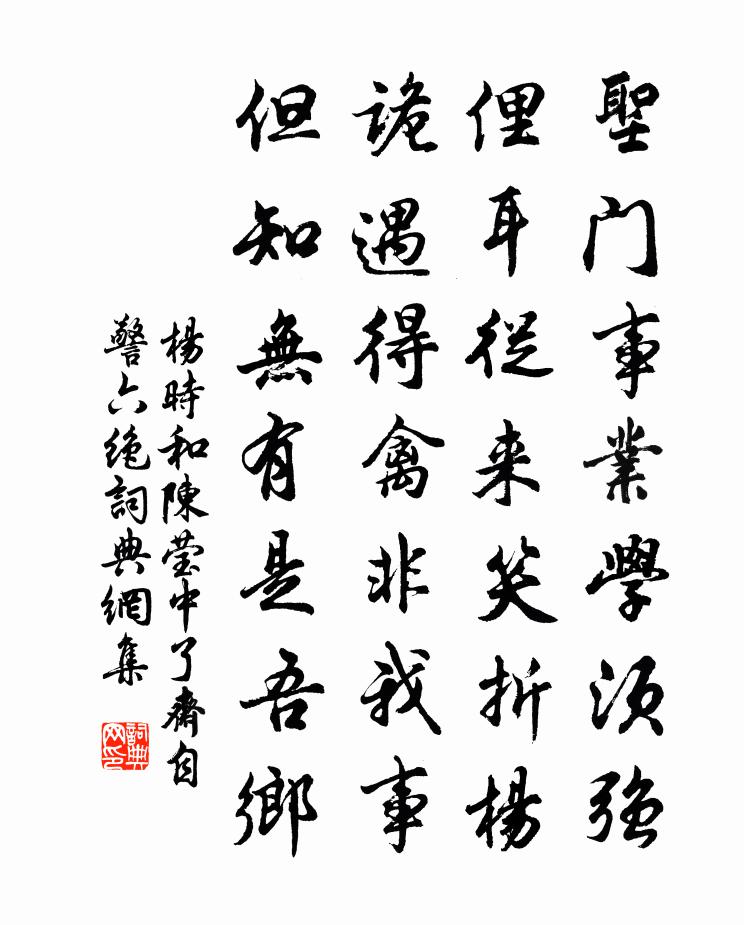 聖門事業學須強
俚耳從来笑折楊
詭遇得禽非我事
但知無有是吾鄉
楊時和陳瑩中了齋自
警六絶詞典網集
詞典網印